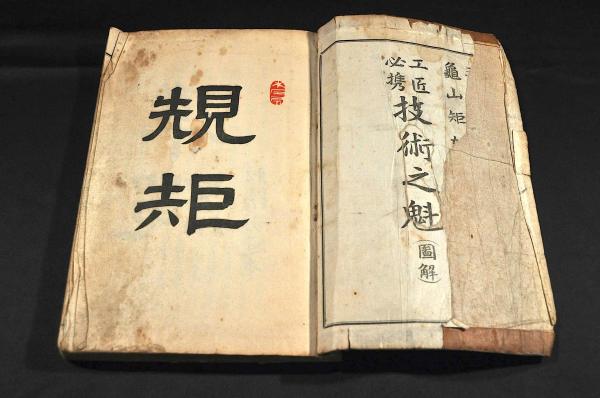 龜山矩
工匠
必携
技術之魁
圖解
規矩